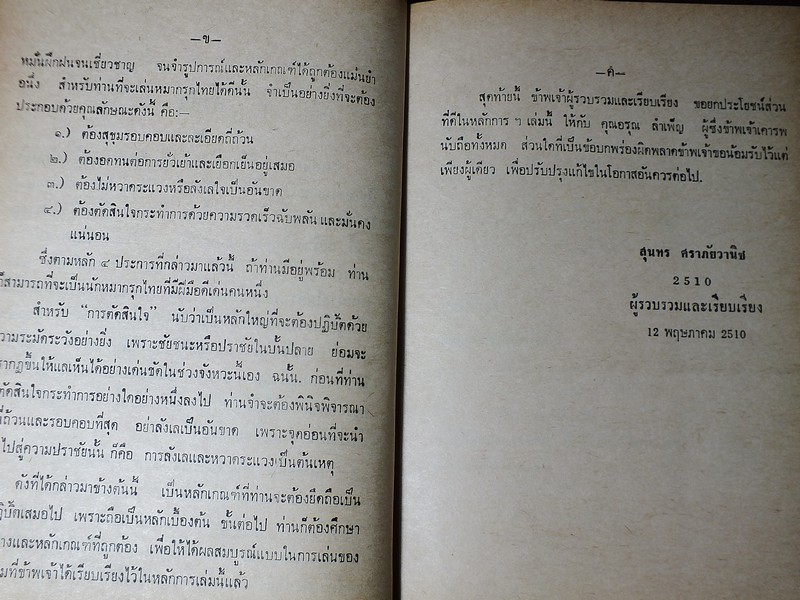 —ข—
หมั่นฝึกฝนจนเชี่ยวชาญ จนจำรูปการณ์และหลักเกณฑ์ได้ถูกต้องแม่นยำ
อนึ่ง สำหรับท่านที่จะเล่นหมากรุกไทยได้ดีนั้น จำเป็นอย่างยิ่งที่จะต้อง
ประกอบด้วยคุณลักษณะดังนี้ คือ:—
๑.) ต้องสุขุมรอบคอบและละเอียดถี่ถ้วน
๒.) ต้องอดทนต่อการยั่วเย้าและเยือกเย็นอยู่เสมอ
๓.) ต้องไม่หวาดระแวงหรือลังเลใจเป็นอันขาด
๔.) ต้องตัดสินใจกระทำการด้วยความรวดเร็วฉับพลัน และมั่นคง
แน่นอน
ซึ่งตามหลัก ๔ ประการที่กล่าวมาแล้วนี้ ถ้าท่านมีอยู่พร้อม ท่าน
ก็สามารถที่จะเป็นนักหมากรุกไทยที่มีฝีมือดีเด่นคนหนึ่ง
สำหรับ “การตัดสินใจ” นับว่าเป็นหลักใหญ่ที่จะต้องปฏิบัติด้วย
ความระมัดระวังอย่างยิ่ง เพราะชัยชนะหรือปราชัยในบั้นปลาย ย่อมจะ
รากฏขึ้นให้แลเห็นได้อย่างเด่นชัดในช่วงจังหวะนี้เอง ฉนั้น. ก่อนที่ท่าน
ตัดสินใจกระทำการอย่างใดอย่างหนึ่งลงไป ท่านจำจะต้องพินิจพิจารณา
ถี่ถ้วนและรอบคอบที่สุด อย่าลังเลเป็นอันขาด เพราะจุดอ่อนที่จะนำ
ไปสู่ความปราชัยนั้น ก็คือ การลังเลและหวาดระแวงเป็นต้นเหตุ
ดังที่ได้กล่าวมาข้างต้นนี้ เป็นหลักเกณฑ์ที่ท่านจะต้องยึดถือเป็น
ฏิบัติเสมอไป เพราะถือเป็นหลักเบื้องต้น ขั้นต่อไป ท่านก็ต้องศึกษา
างและหลักเกณฑ์ที่ถูกต้อง เพื่อให้ได้ผลสมบูรณ์แบบในการเล่นของ
มที่ข้าพเจ้าได้เรียบเรียงไว้ในหลักการเล่มนี้แล้ว
—ค—
สุดท้ายนี้ ข้าพเจ้าผู้รวบรวมและเรียบเรียง ขอยกประโยชน์ส่วน
ที่ดีในหลักการ ฯ เล่มนี้ ให้กับ คุณอรุณ ลำเพ็ญ ผู้ซึ่งข้าพเจ้าเคารพ
นับถือทั้งหมด ส่วนใดที่เป็นข้อบกพร่องผิดพลาดข้าพเจ้าขอน้อมรับไว้แต่
เพียงผู้เดียว เพื่อปรับปรุงแก้ไขในโอกาสอันควรต่อไป.
สุนทร ศราภัยวานิช
2510
ผู้รวบรวมและเรียบเรียง
12 พฤษภาคม 2510